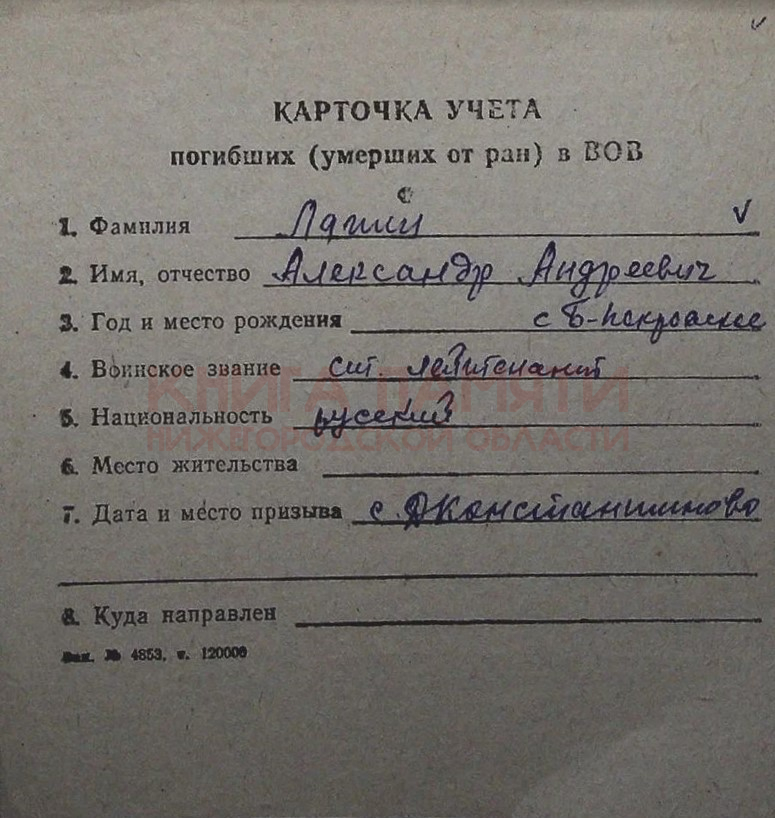 КАРТОЧКА УЧЕТА
погибших (умерших от ран) в ВОВ
1. Фамилия Лапин
2. Имя, отчество Александр Андреевич
3. Год и место рождения с Б-Покровское
4. Воинское звание лейтенант
5. Национальность русский
КНИГА ПАМЯТИ
НИЖЕГОРОДСКОЙ ОБЛАСТИ
6. Место жительства
7. Дата и место призыва с. ДКонстантиново
8. Куда направлен
Зак. № 4853, т. 120000